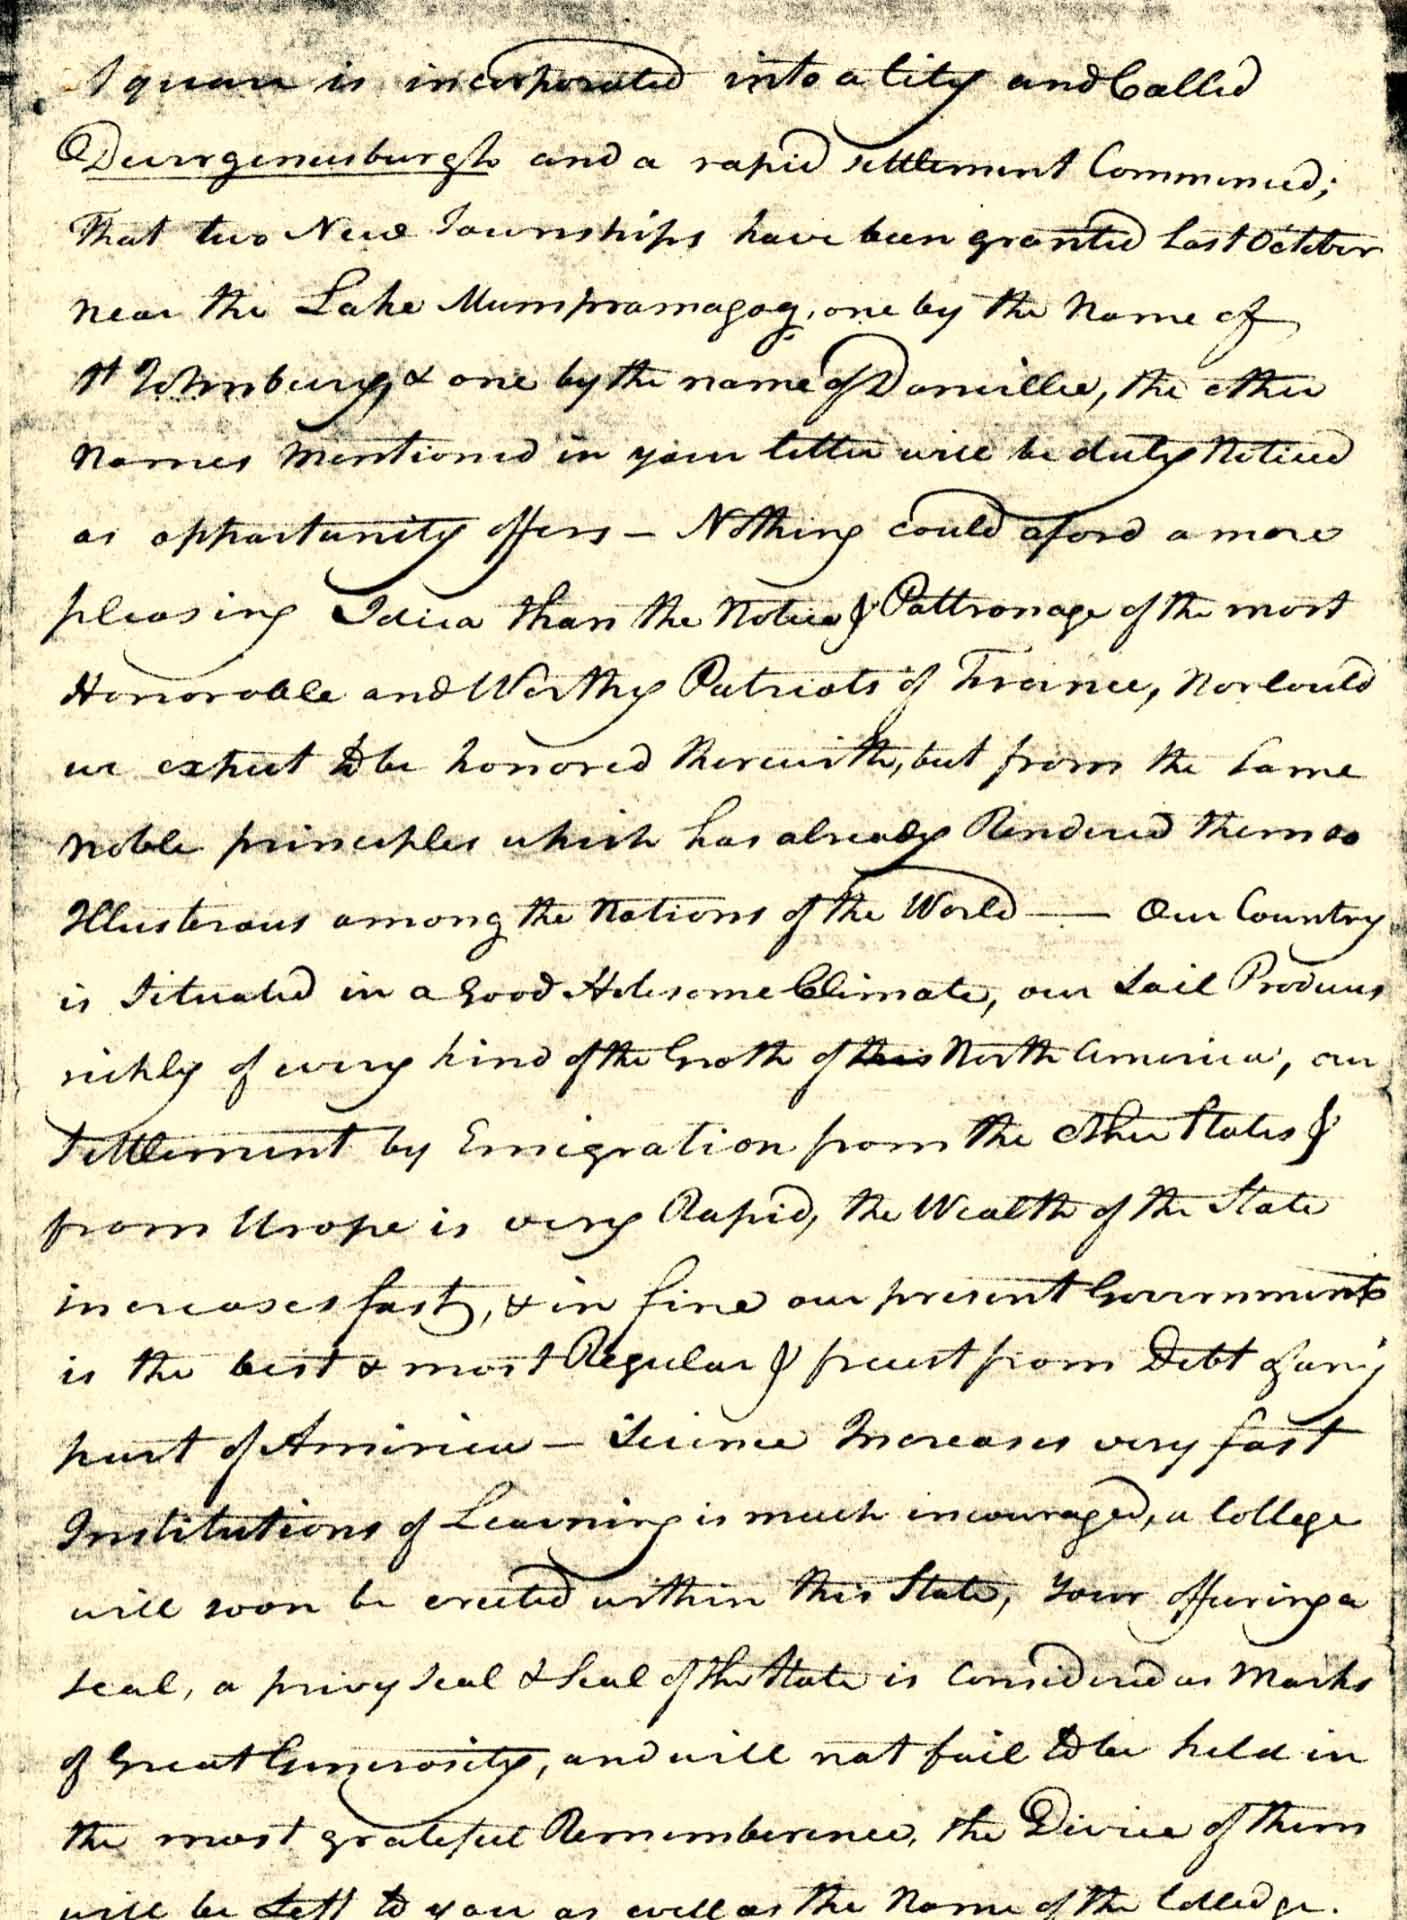 Square is incorporated into a City and Called
Deurrgeneusburgh and a rapid settlement Commenced;
That two New Townships have been granted last October
near the Lake Mumpramagog, one by the Name of
St Johnbury, & one by the name of Danville, the other
Names Mentioned in your letter will be duly Noticed
as oppartunity offers — Nothing could aford a more
pleasing Idiea than the Notice & Pattronage of the most
Honorable and Worthy Patriots of France, Nor Could
we expect to be honored therewith, but from the Same
noble principles which has already Rendered them so
Illusterous among the Nations of the World — Our Country
is Situated in a Good Holesome Climate, our Soil Produces
richly of every kind of the Groth of this North America, our
Settlement by Emigration from the other States &
from Urope is very Rapid, the Wealth of the State
increases fast, & in fine our present Government
is the best & most Regular & freest from Debt of any
part of America — Science Increases very fast
Institutions of Learning is much incouraged, a College
will soon be erected within this State, Your offering a
seal, a privy Seal & Seal of the State is Considered as Marks
of Great Generosity, and will not fail to be held in
the most grateful Rememberence, the Divice of them
will be Left to you as well as the Name of the Colledge.